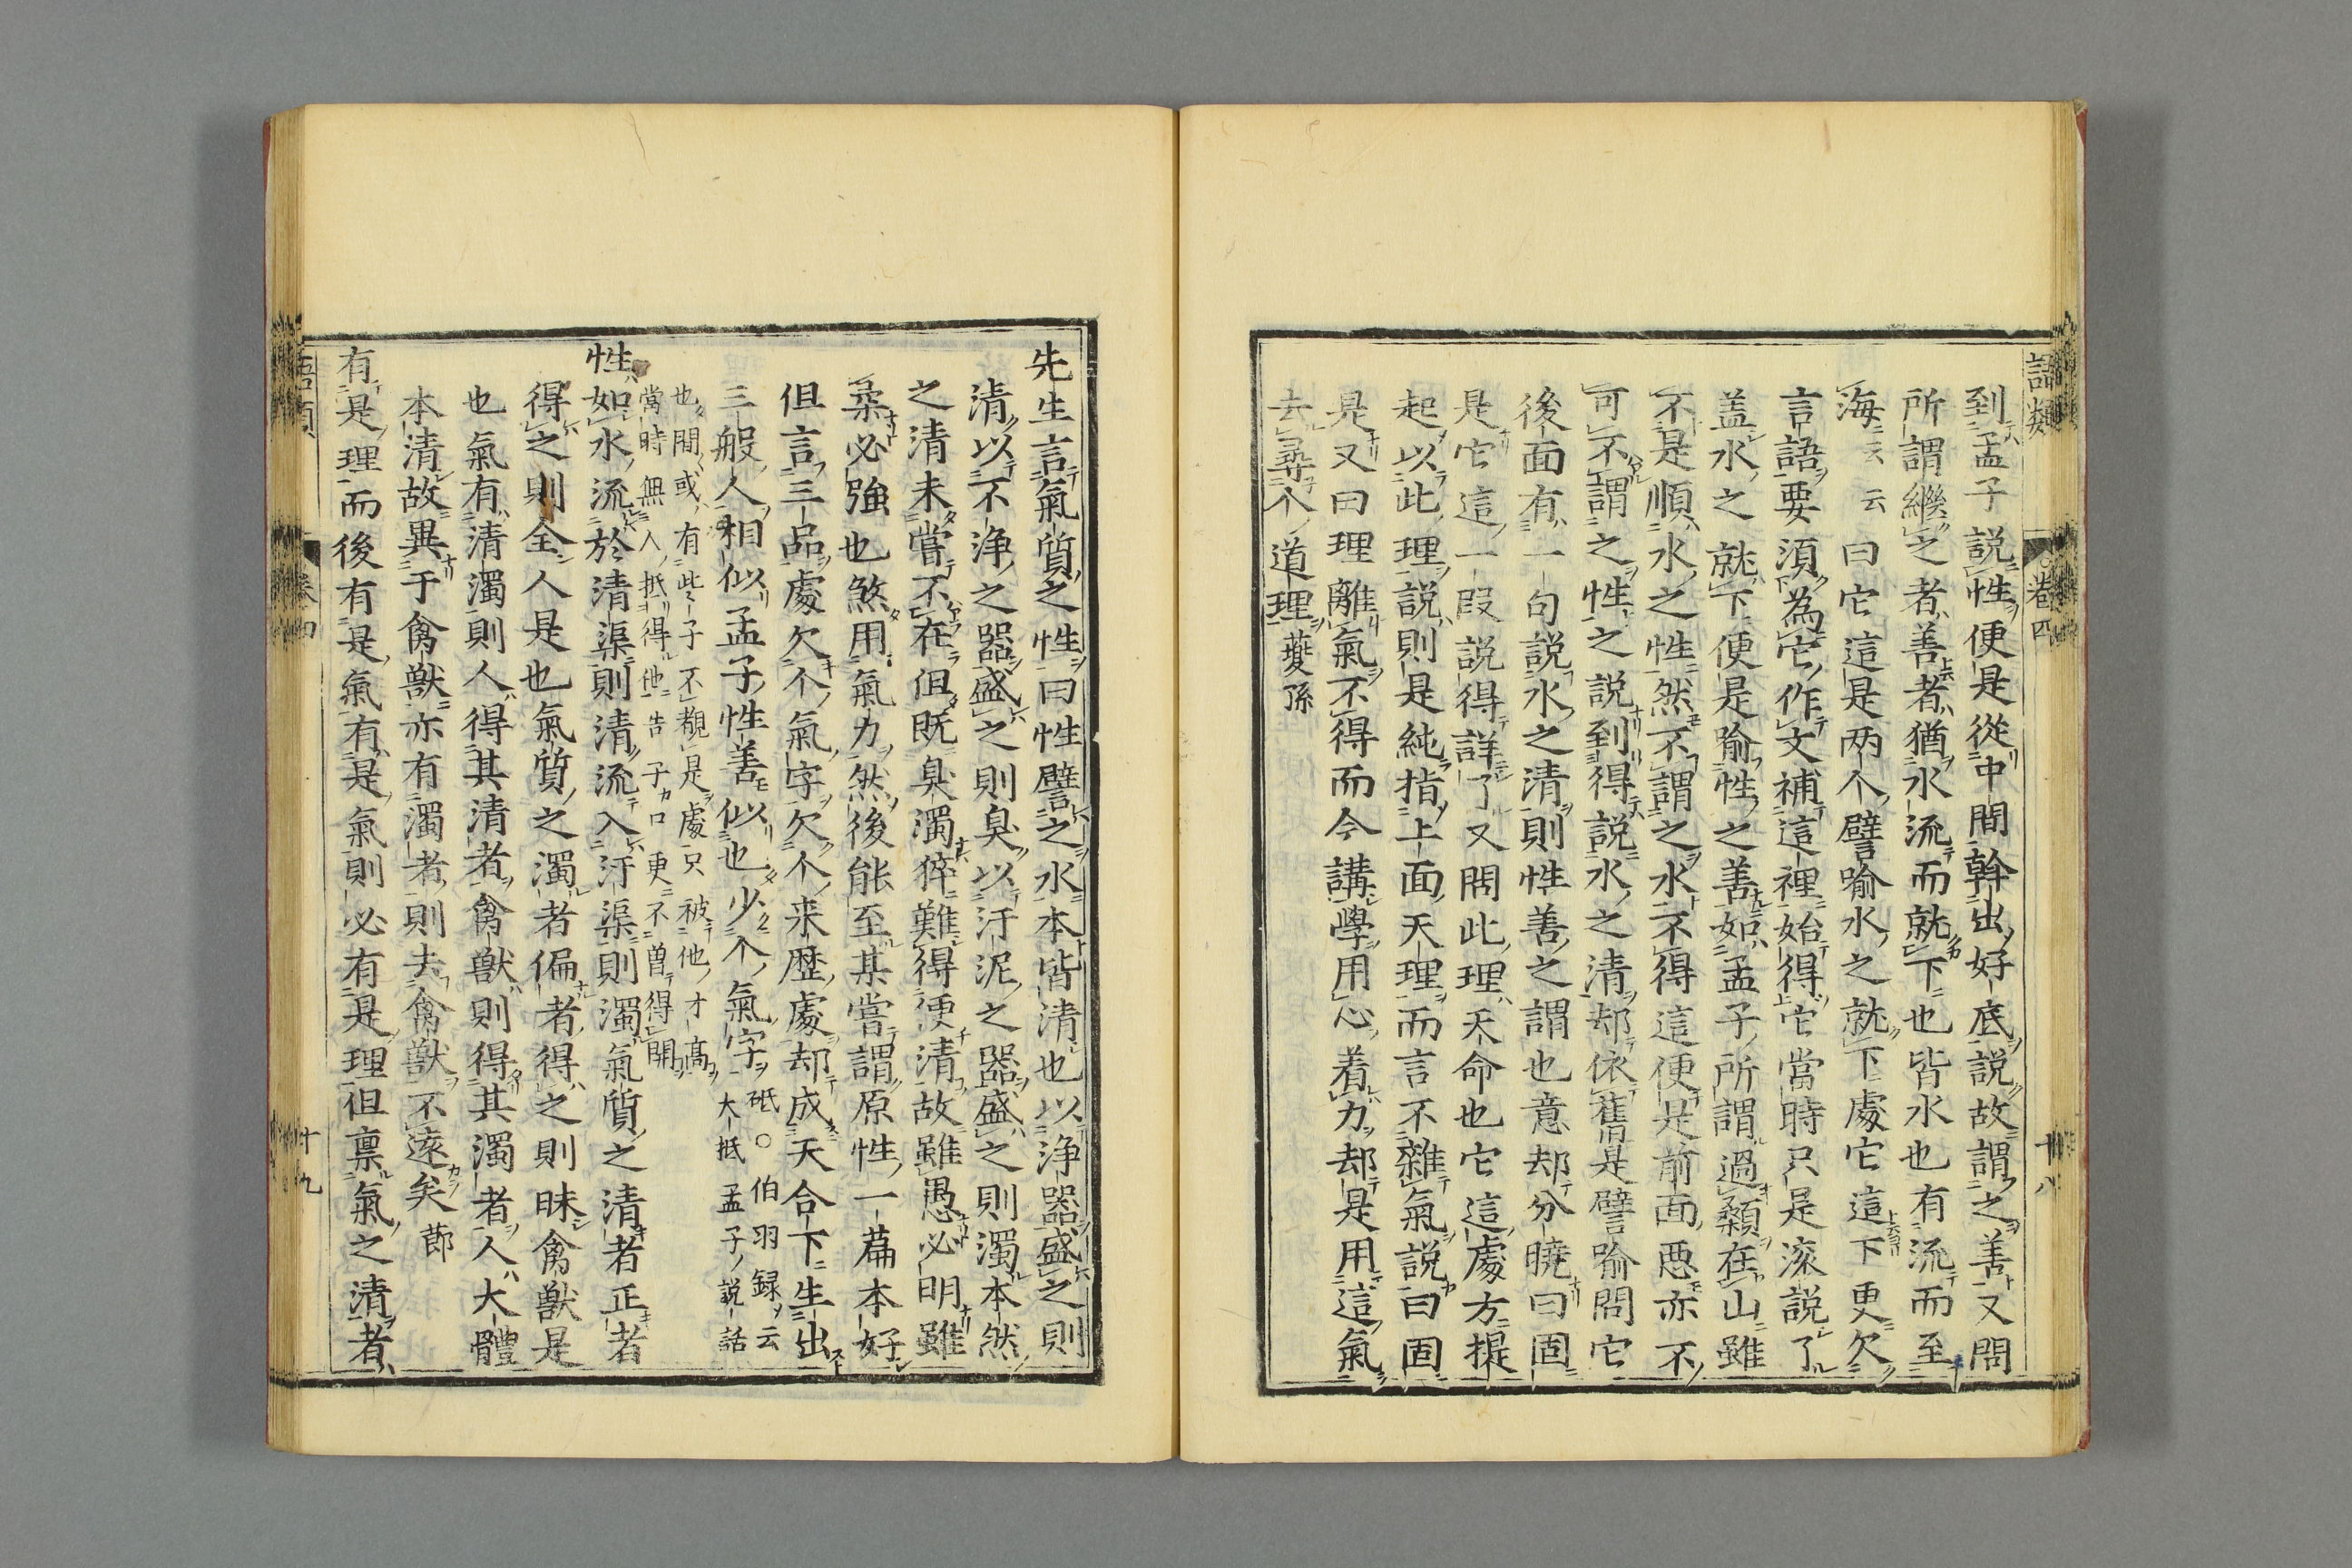 語類
卷四
十八
到孟子說性便是從中間斡出好底說故謂之善又問
所謂繼之者善者猶水流而就下也皆水也有流而至
海云云曰它這是两个譬喻水之就下處它這下更欠
言語要須為它作文補這裡始得它當時只是滚說了
盖水之就下便是喻性之善如孟子所謂過顙在山雖
不是順水之性然不謂之水不得這便是前面惡亦不
可不謂之性之說到得說水之清却依舊是譬喻問它
後面有一句說水之清則性善之謂也意却分曉曰固
是它這一段說得詳了又問此理天命也它這處方提
起以此理說則是純指上面天理而言不雜氣說曰固
是又曰理離氣不得而今講學用心着力却是用這氣
去尋个道理夔孫
先生言氣質之性曰性譬之水本皆清也以浄器盛之則
清以不浄之器盛之則臭以汙泥之器盛之則濁本然
之清未嘗不在但既臭濁猝難得便清故雖愚必明雖
柔必強也煞用氣力然後能至某嘗謂原性一篇本好
但言三品處欠个氣字欠个来歴處却成天合下生出
三般人相似孟子性善似也少个氣字砥○伯羽録云
大抵孟子說話
也間或有些子不覩是處只被他才高
當時無人抵得他告子口更不曽得開
性如水流於清渠則清流入汙渠則濁氣質之清者正者
得之則全人是也氣質之濁者偏者得之則昧禽獸是
也氣有清濁則人得其清者禽獸則得其濁者人大體
本清故異于禽獸亦有濁者則去禽獸不遠矣節
有是理而後有是氣有是氣則必有是理但禀氣之清者
語類
卷四
十九